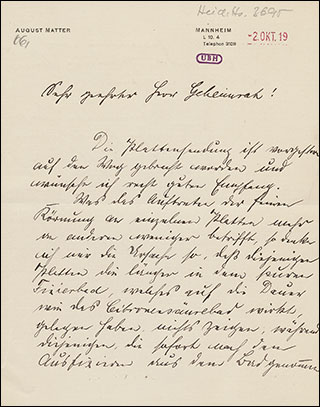 Heid. Hs. 3695
AUGUST MATTER
MANNHEIM
L 10. 4
-2. OKT. 19
UBH
Sehr geehrter Herr Geheimrat!
Die Plattensendung ist vorgestern
auf den Weg gebracht worden und
wünsche ich recht guten Empfang.
Was das Auftreten der feinen
Körnung an einzelnen Platten mehr
an anderen weniger betrifft so denke
ich mir die Ursache so, daß diejenigen
Platten die länger in dem sauren
Fixierbad, welches auf die Dauer
wie das Citronensäurebad wirkt,
gelegen haben nichts zeigen, während
diejenigen die sofort nach dem
Ausfixieren aus dem Bad genommen